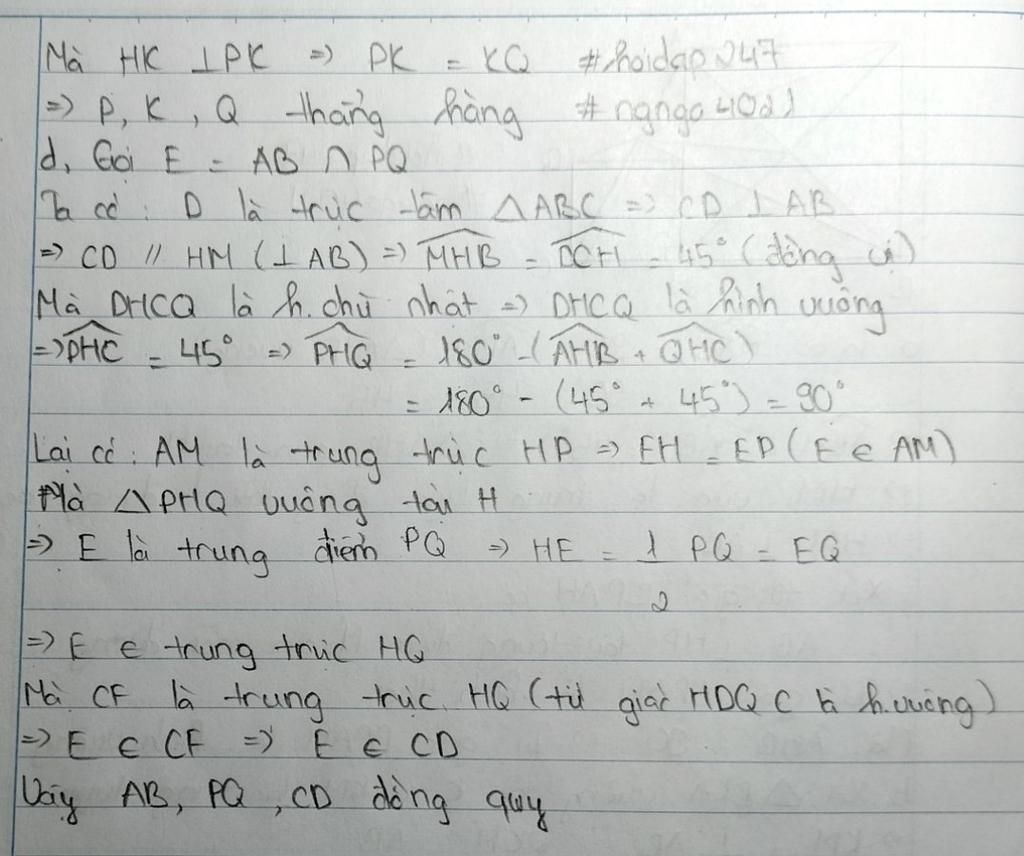 Mà HK ⊥ PK => PK = KQ #hoidap247
=> P, K, Q thẳng hàng #ngngo4021
d, Gọi E = AB ∩ PQ
Ta có : D là trực tâm △ABC => CD ⊥ AB
=> CD // HM (⊥ AB) => MHB = DCH = 45° (đồng vị)
Mà DHCQ là h.chữ nhật => DHCQ là hình vuông
=> DHC = 45° => PHQ = 180° - (AHB + QHC)
= 180° - (45° + 45°) = 90°
Lại có : AM là trung trực HP => EH = EP (E ∈ AM)
Mà △PHQ vuông tại H
=> E là trung điểm PQ => HE = 1/2 PQ = EQ
=> E ∈ trung trực HQ
Mà CF là trung trực HQ (tứ giác HDQC là h.vuông)
=> E ∈ CF => E ∈ CD
Vậy AB, PQ, CD đồng quy